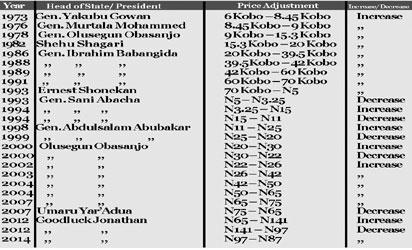 Year Head of State/ President Price Adjustment Increase/ Decrease
1973 Gen. Yakubu Gowan 6 Kobo – 8.45 Kobo Increase
1976 Gen. Murtala Mohammed 8.45 Kobo – 9 Kobo ,,
1978 Gen. Olusegun Obasanjo 9 Kobo – 15.3 Kobo ,,
1982 Shehu Shagari 15.3 Kobo – 20 Kobo ,,
1986 Gen. Ibrahim Babangida 20 Kobo – 39.5 Kobo ,,
1988 ,, ,, ,, 39.5 Kobo – 42 Kobo ,,
1989 ,, ,, ,, 42 Kobo – 60 Kobo ,,
1991 ,, ,, ,, 60 Kobo – 70 Kobo ,,
1993 Ernest Shonekan 70 Kobo – N5 ,,
1993 Gen. Sani Abacha N5 – N3.25 Decrease
1994 ,, ,, ,, N3.25 – N15 Increase
1994 ,, ,, ,, N15 – N11 Decrease
1998 Gen. Abdulsalam Abubakar N11 – N25 Increase
1999 ,, ,, ,, N25 – N20 Decrease
2000 Olusegun Obasanjo N20 – N30 Increase
2000 ,, ,, N30 – N22 Decrease
2002 ,, ,, N22 – N26 Increase
2003 ,, ,, N26 – N42 ,,
2004 ,, ,, N42 – N50 ,,
2004 ,, ,, N50 – N65 ,,
2007 ,, ,, N65 – N75 ,,
2007 Umaru Yar'Adua N75 – N65 Decrease
2012 Goodluck Jonathan N65 – N141 Increase
2012 ,, ,, N141 – N97 Decrease
2014 ,, ,, N97 – N87 ,,